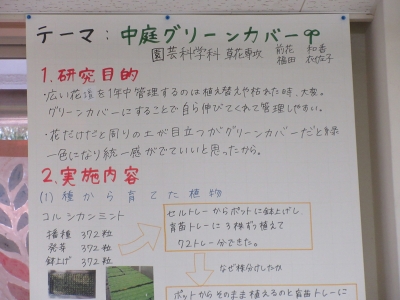 テーマ：中庭グリーンカバー
園芸科学科 草花専攻 前花 和香
福田 衣佐子
1.研究目的
・広い花壇を1年中管理するのは植え替えや枯れた時、大変。
グリーンカバーにすることで自ら伸びてくれて管理しやすい。
・花だけだと周りの土が目立つがグリーンカバーだと緑
一色になり統一感がでていいと思ったから。
2.実施内容
(1) 種から育てた植物
コルシカンミント
播種 372粒
発芽 372粒
鉢上げ 372粒
セルトレーからポットに鉢上げし、
育苗トレーに3株ずつ植えて
72トレー分できた。
なぜ株分けしたか
ポットからそのまま植えるのと育苗トレーに